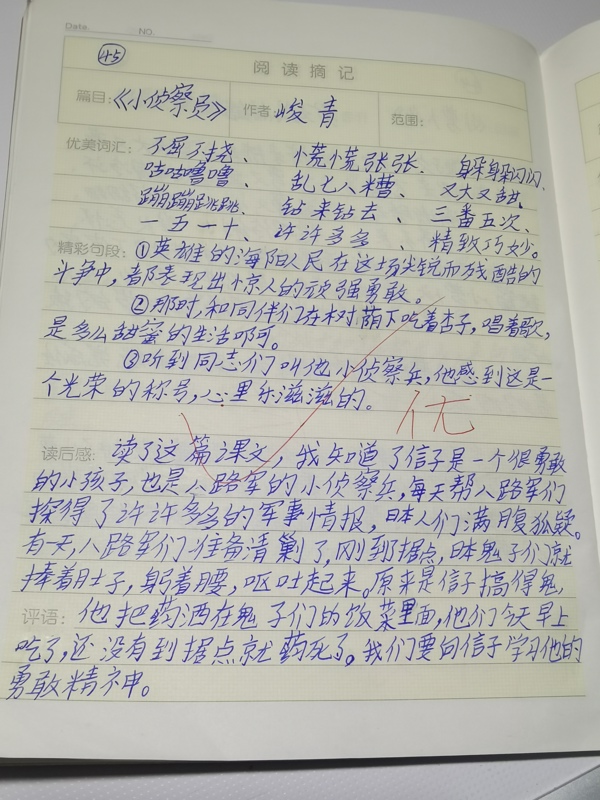 Date. NO.
45
阅读摘记
篇目:《小侦察员》 作者 峻青 范围:
优美词汇: 不屈不挠、 慌慌张张. 躲躲闪闪.
咕咕噜噜、 乱七八糟、 又大又甜.
蹦蹦跳跳、 钻来钻去、 三番五次、
一五一十、 许许多多、 精致巧妙。
精彩句段: ①英雄的海阳人民在这场尖锐而残酷的
斗争中,都表现出惊人的顽强勇敢。
②那时,和同伴们在树荫下吃着杏子,唱着歌,
是多么甜蜜的生活啊可。
③听到同志们叫他小侦察兵,他感到这是一
个光荣的称号,心里乐滋滋的。
优
读后感: 读了这篇课文,我知道了信子是一个很勇敢
的小孩子,也是八路军的小侦察兵,每天帮八路军们
探得了许许多多的军事情报,日本人们满腹狐疑。
有一天,八路军们准备清剿了,刚到据点,日本鬼子们就
捧着肚子,躬着腰,呕吐起来。原来是信子搞得鬼,
评语: 他把药洒在鬼子们的饭菜里面,他们今天早上
吃了,还没有到据点就药死了。我们要向信子学习他的
勇敢精神。